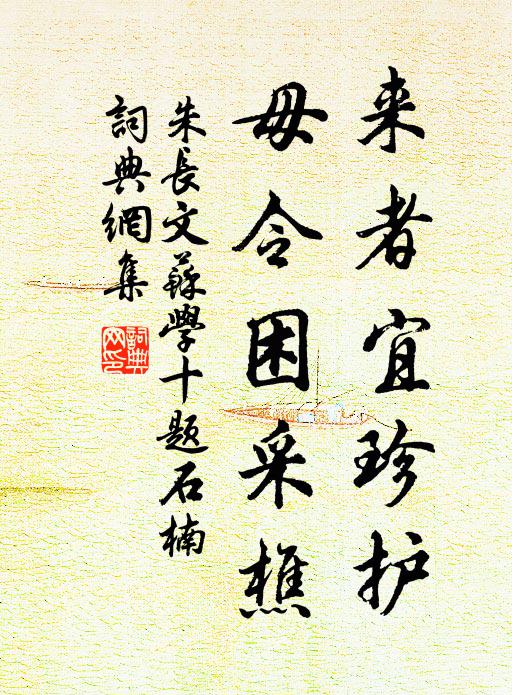 来者宜珍护
毋令困采樵
朱長文蘇學十题石楠
詞典網集
詞典网印